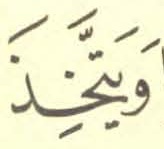 وَيَتَّخِذَ